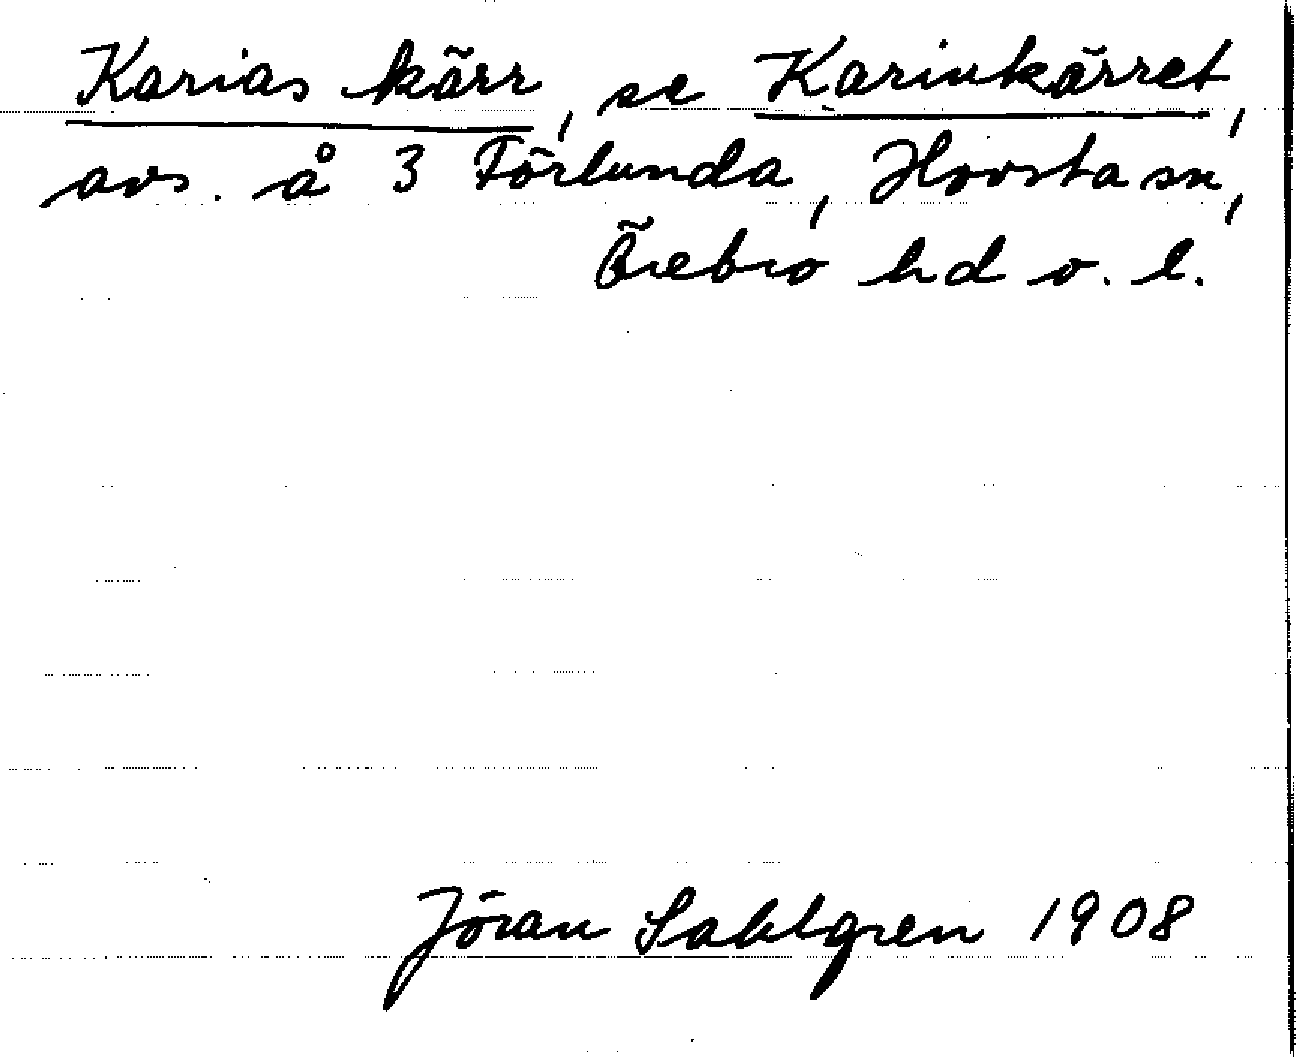 Karias kärr, se Karinkärret,
avs. å 3 Förlunda, Hovsta sn,
Örebro hd o. l.
Jöran Sahlgren 1908